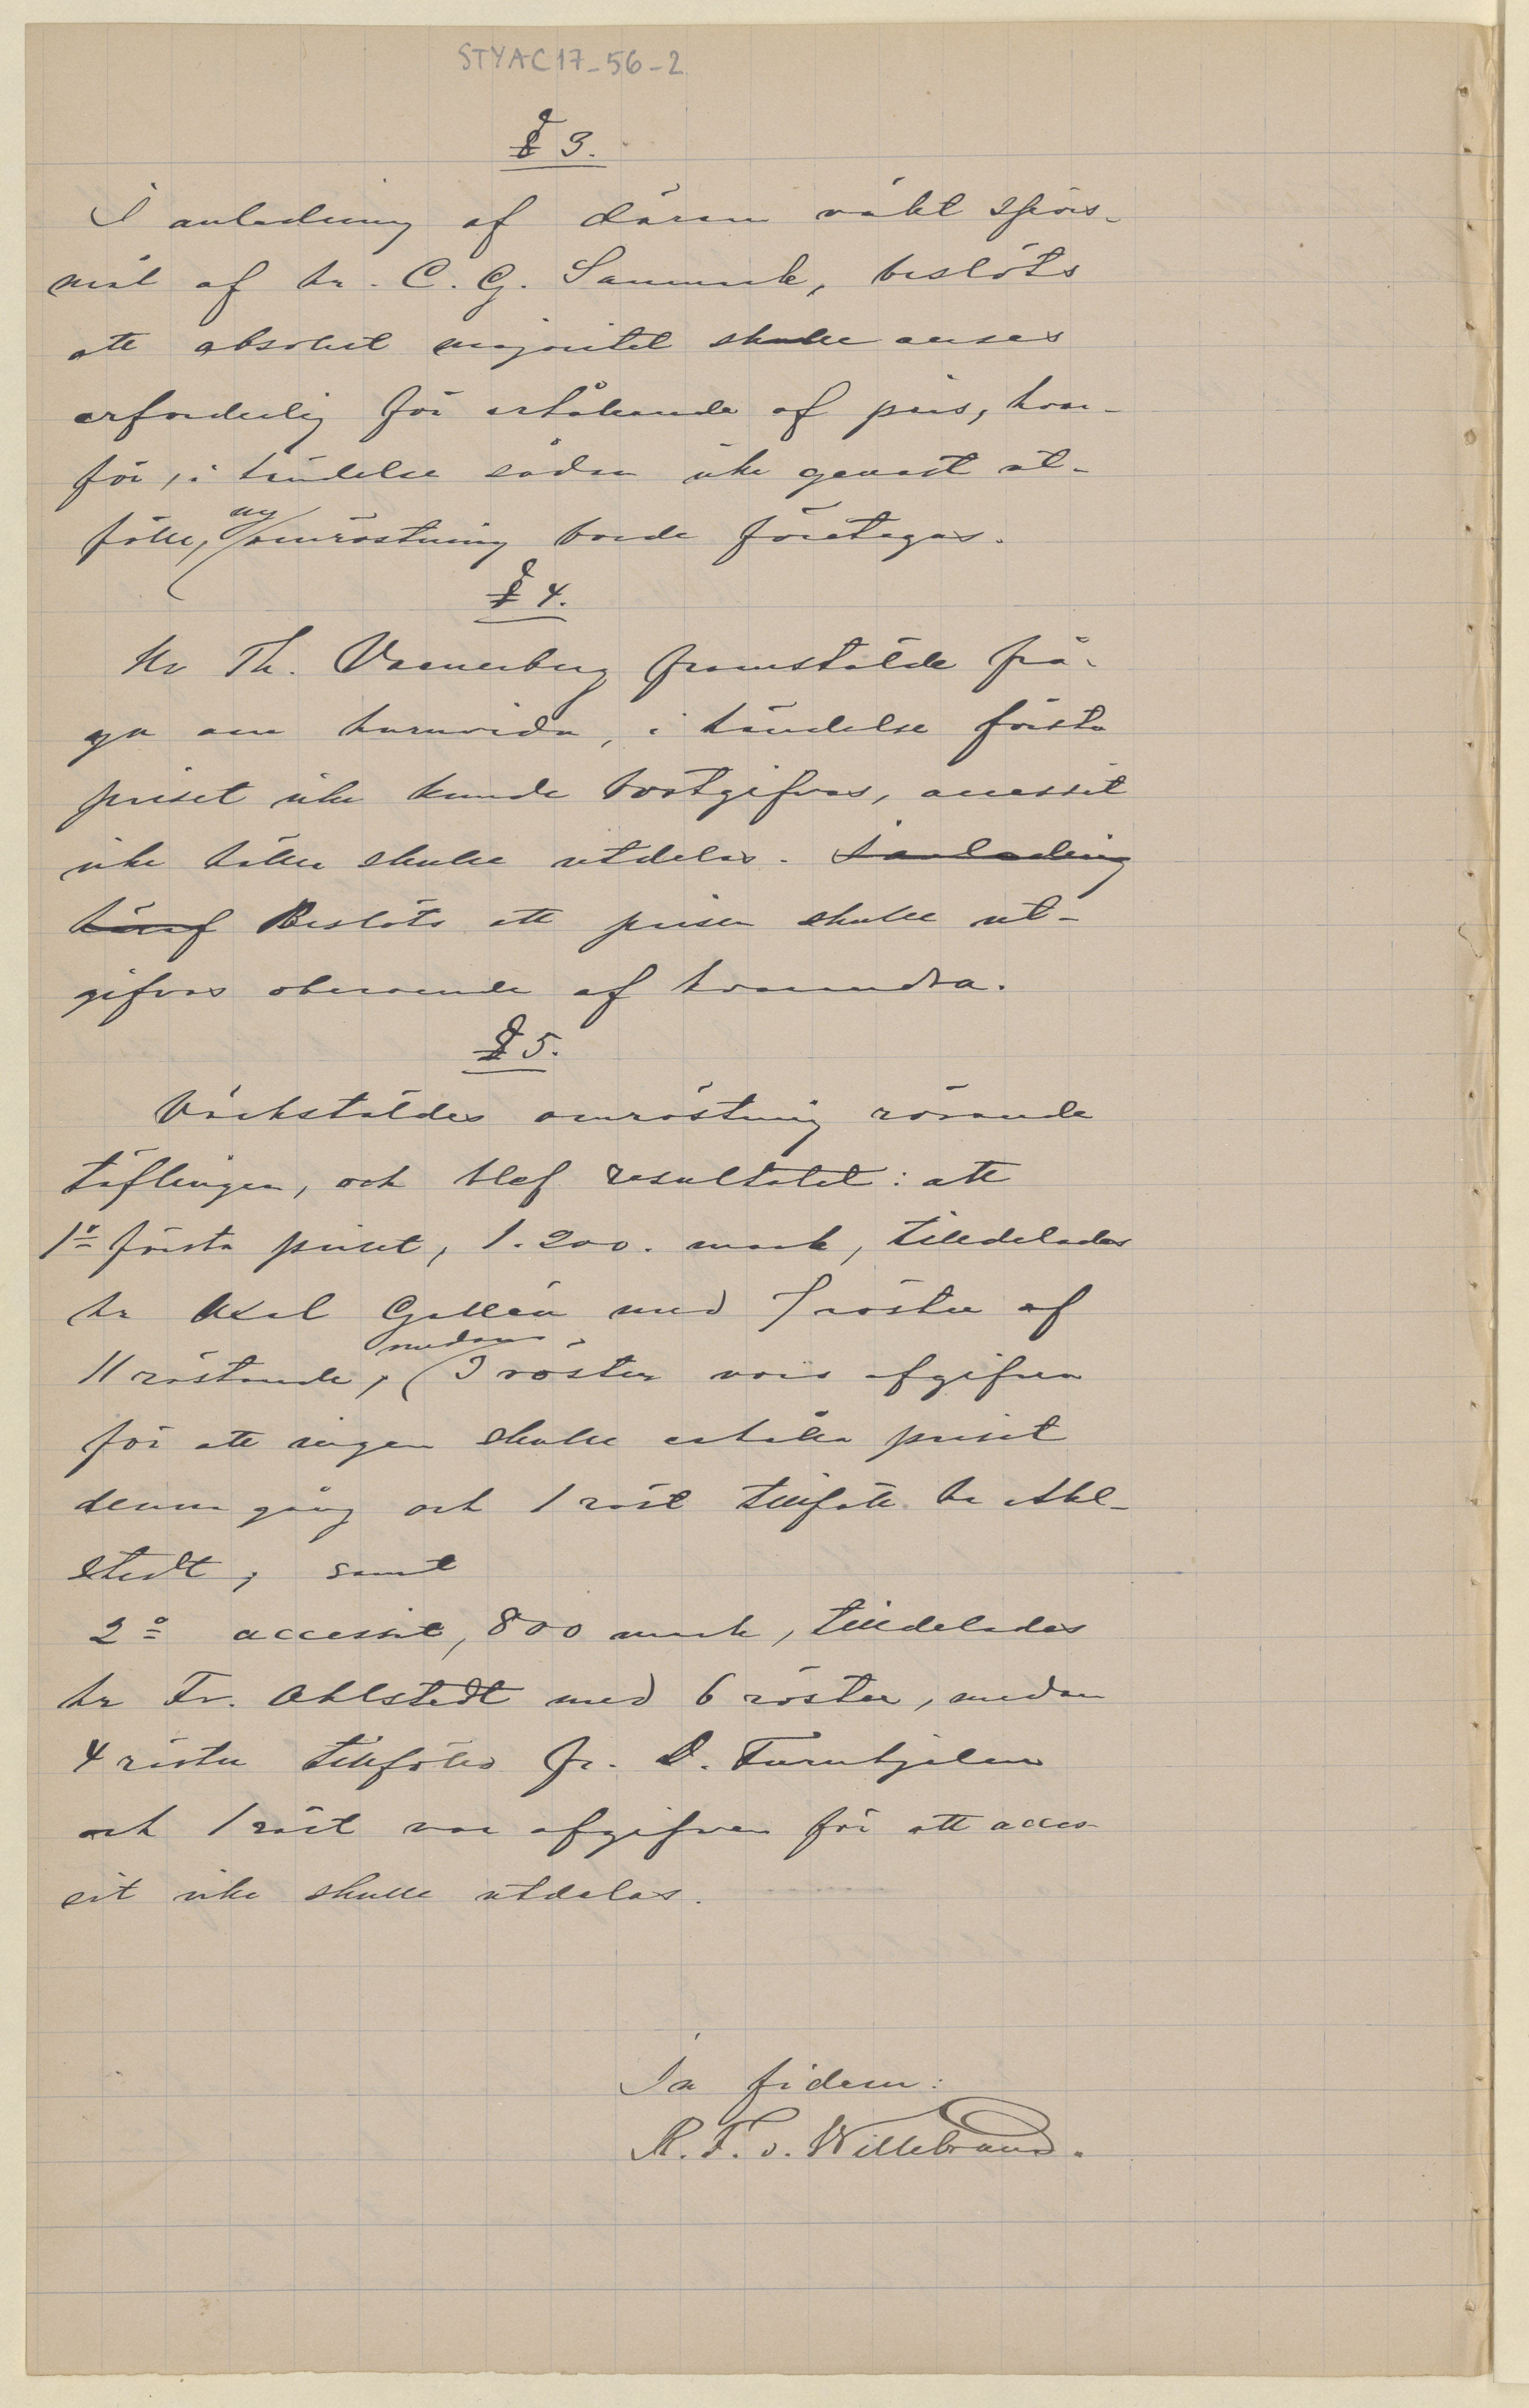 STYAC17-56-2
§ 3.
I anledning af därom väkt spörs-
mål af hr. C. G. Sanmark, beslöts
att absolut majoritet skulle anses
erforderlig för erhållande af pris, hvar-
för, i händelse sådan icke genast ut-
fölle, ny omröstning borde företagas.
§ 4.
Hr Th. Waenerberg framstälde frå-
ga om huruvida, i händelse första
priset icke kunde bortgifvas, accessit
icke häller skulle utdelas. I anledning
häraf Beslöts att prisen skulle ut-
gifvas oberoende af hvarandra.
§ 5.
Värkstäldes omröstning rörande
täflingen, och blef resultatet: att
1º första priset, 1.200. mark, tilldelades
hr Axel Gallén med 7 röster af
11 röstande, medan 3 röster vois afgifven
för att ingen skulle erhålla priset
denna gång och 1 röst tillföll hr Ahl-
stedt, samt
2º accessit, 800 mark, tilldelades
hr Fr. Ahlstedt med 6 röster, medan
4 röster tillföllo fr. D. Törnhjelm
och 1 röst var afgifven för att acces-
sit icke skulle utdelas.
In fidem:
R. F. v. Willebrand.